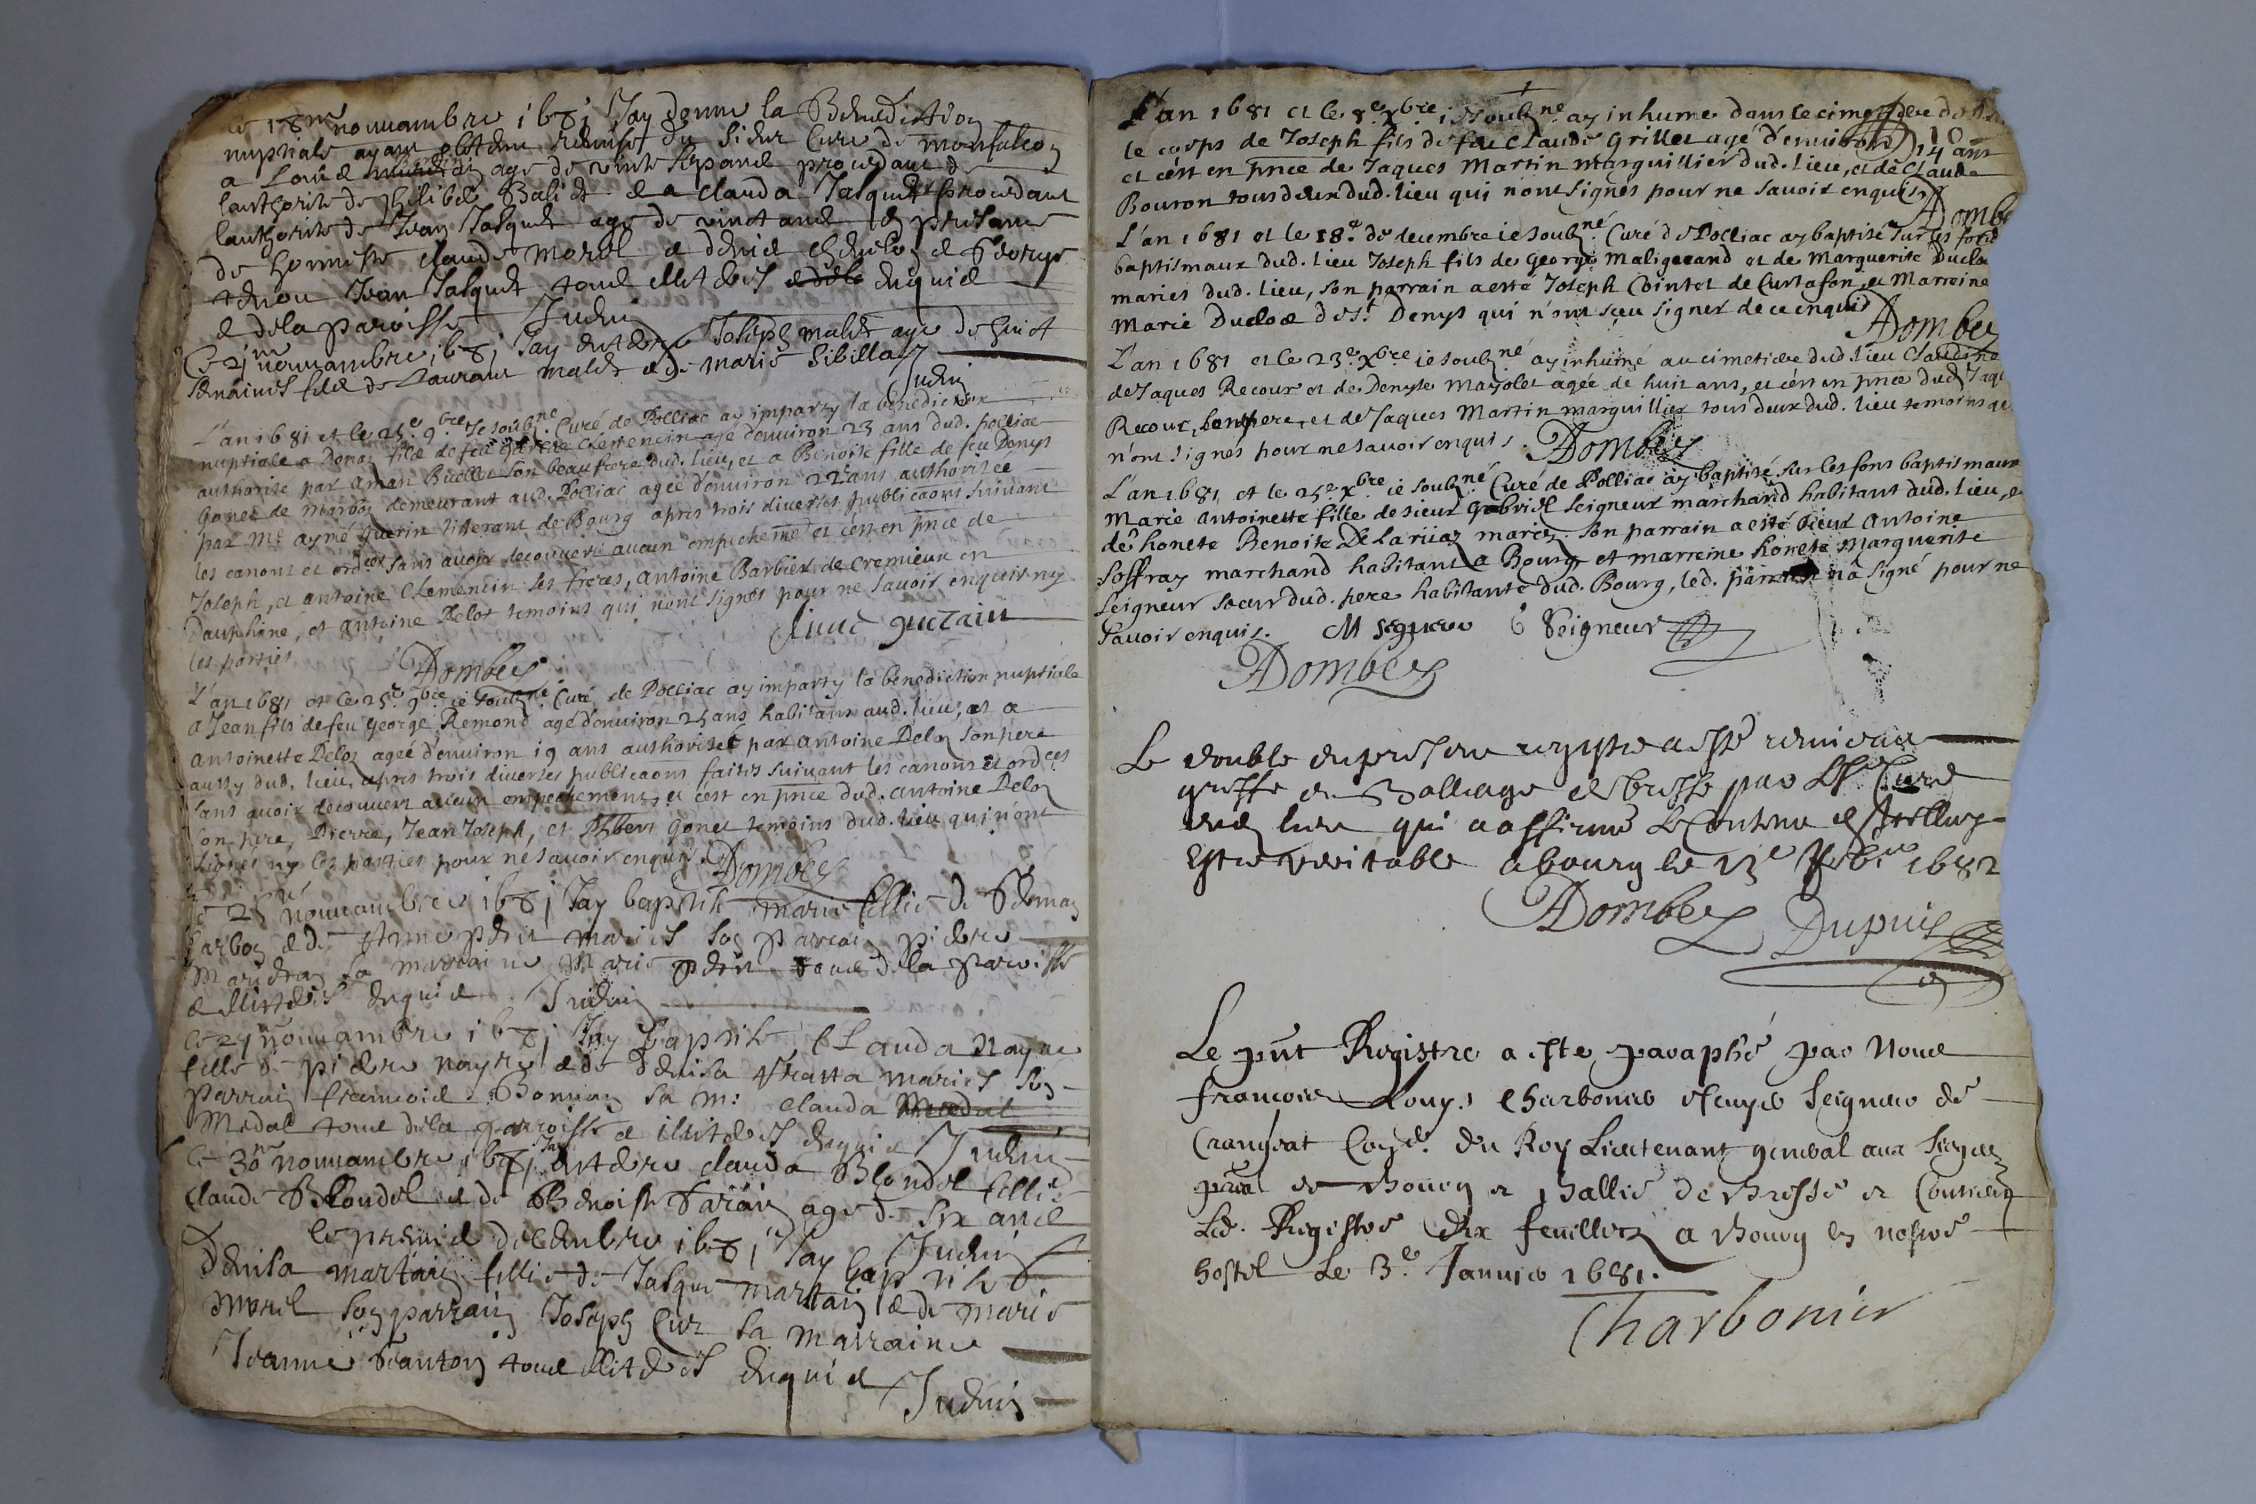 ce 18me nouuambre 1681 Jay donne la Benediction
nuptiale ayant obtenu remise du sieur Cure de monfalcon
a Loüe age de vint sept ans procedant de
lauthorite de philibe Balict e a clauda Jasquet procedant
lauthorite de Jean Jasquet age de vint ans presance
de honneste claude morel e denis e George
Jean Jasquet tous illiteres enquis
e de la paroisse Judin
Ce 21me nouuambre 1681 Jay enterre Joseph malet age de huict
semaines fils de Laurant malet e de marie sibilla
Judin
L'an 1681 et le 25e 9bre Je soubzné Curé de Polliac ay imparty la benediction
nuptiale a Denoz filz de feu Clemencin agé d'environ 23 ans dud. polliac
authorisé par Aman Buellet son beau frere dud. lieu, et a Benoite fille de feu Denys
Gonet de marboz demeurant aud. Polliac agée d'environ 22 ans authorisée
par Me aymé Guerin titterant de Bourg apres trois diverses publicaons suivant
les canons et ordces sans avoir decouvert aucun empechemt et c'est en pnce de
Joseph, et antoine Clemencin ses freres, Antoine Barbier de Cremieux en
Dauphiné, et antoine Delot temoins qui n'ont signés pour ne savoir enquis ny
les parties
Aimé guerain
ADombey
L'an 1681 et le 25e 9bre ie soubzné Curé de Polliac ay imparty la benediction nuptiale
a Jean fils de feu George Remond agé d'environ 25 ans habitant aud. lieu, et a
Antoinette Deloz ageé d'environ 19 ans authorisée par antoine Deloz son pere
aussy dud. lieu, apres trois diverses publicaons faites suivant les canons et ordces
sans avoir decouvert aucun empechement, et c'est en pnce dud. antoine Deloz
son pere, Pierre, Jean Joseph, et Phbert Gonet temoins dud. lieu qui n'ont
signes ny les parties pour ne savoir enquis. ADombey
ce 25me nouuambre 1681 Jay baptise marie fillie de
Carboz e de Anne pdrin maries son parrain pierre
Maridran sa marraine Marie pdrin tous de la paroisse
e illiteres enquis Judin
Ce 27me nouuambre 1681 Jay baptise Clauda nayre
fille de pierre nayre e de denisa maries son
parrain francois Bonnan sa m: clauda
Medal tous de la parroisse e illiteres enquis Judin
Ce 30me nouuambre 1681 Jay enterre clauda Blondel fillie
Claude Blondel e de Benoiste age de six ans
Judin
le premie decembre 1681 Jay baptise
denisa martain fillie de Jasque martain e de marie
morel son parrain Joseph Cur sa marraine
Jeanne tous illiteres enquis
Judin
L'an 1681 et le 8e Xbre ie soubzné ay inhumé dans le cimetiere de
le corps de Joseph fils de feu Claude Grillet agé d'environ 14 ans
et c'est en pnce de Jaques Martin marguillier dud. lieu, et de Claude
Bouron tous deux dud. lieu qui n'ont signés pour ne savoir enquis
ADombe
L'an 1681 et le 18e de decembre ie soubzné Curé de Polliac ay baptisé sur les fons
baptismaux dud. lieu Joseph fils de George Maligerand et de Marguerite Duclo
mariés dud. lieu, son parrain a esté Joseph Cointet de Curtafon, et Marreine
Marie Ducloz de St. Denys qui n'ont sceu signer de ce enquis
ADombey
L'an 1681 et le 23e Xbre ie soubzné ay inhumé au cimetiere dud. lieu Claudine
de Jaques Recour et de Denyse Mayolet agée de huit ans, et c'est en pnce dud. Jaq
Recour, son pere, et de Jaques Martin marguillier tous deux dud. lieu temoins qe
n'ont signés pour ne savoir enquis. ADombey
L'an 1681 et le 25e Xbre ie soubzné Curé de Polliac ay baptisé sur les fons baptismaux
Marie Antoinette fille de sieur Gabriel Seigneur marchand habitant dud. lieu, e
de honete Benoite De Lariiaz mariez. Son parrain a esté sieur Antoine
Soffray marchand habitant a Bourg et marreine honete Marguerite
Seigneur soeur dud. pere habitante dud. Bourg, led. parrain n'a signé pour ne
savoir enquis. M segneur G Seigneur
ADombey
Le double du present registre a esté remis au
greffe du Balliage de bresse par Led Sr Curé
dud lieu qui a affirmé Le Contenu
estre veritable a bourg le 13e febr 1682
ADombey Dupuis
Le pnt Registre a este paraphé par Nous
francois Louys Charbonier escuyer Seigneur de
Crangeat Coner du Roy Lieutenant general aux sieges
pnal de Bourg et Ballie de Bresse et Contient
Led. Registre dix feuilletz a Bourg en nostre
hostel Le 3e Januier 1681.
Charbonier